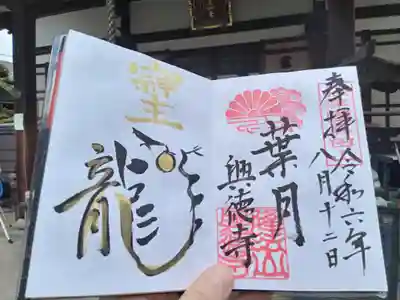 奉拝
令和六年
八月十二日
葉月
興徳寺
龍